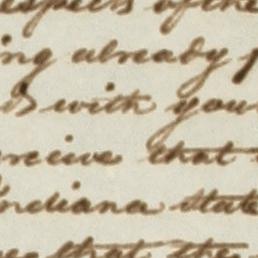 espects of the
ing already p
is with your
receive that
Indiana state
that the